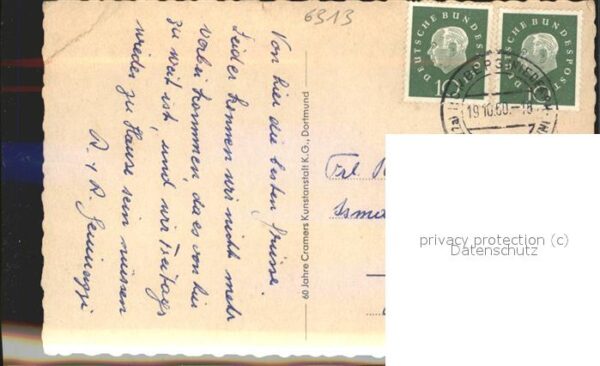 6313
Von hier die besten Grüsse.
Leider können wir nicht mehr
vorbei kommen da es von hier
zu weit ist, und wir Freitags
wieder zu Hause sein müssen
R. + R.
60 Jahre Cramers Kunstanstalt K.G., Dortmund
DEUTSCHE BUNDESPOST
10
DEUTSCHE BUNDESPOST
10
19.10.60.-18
Frl.
privacy protection (c)
Datenschutz